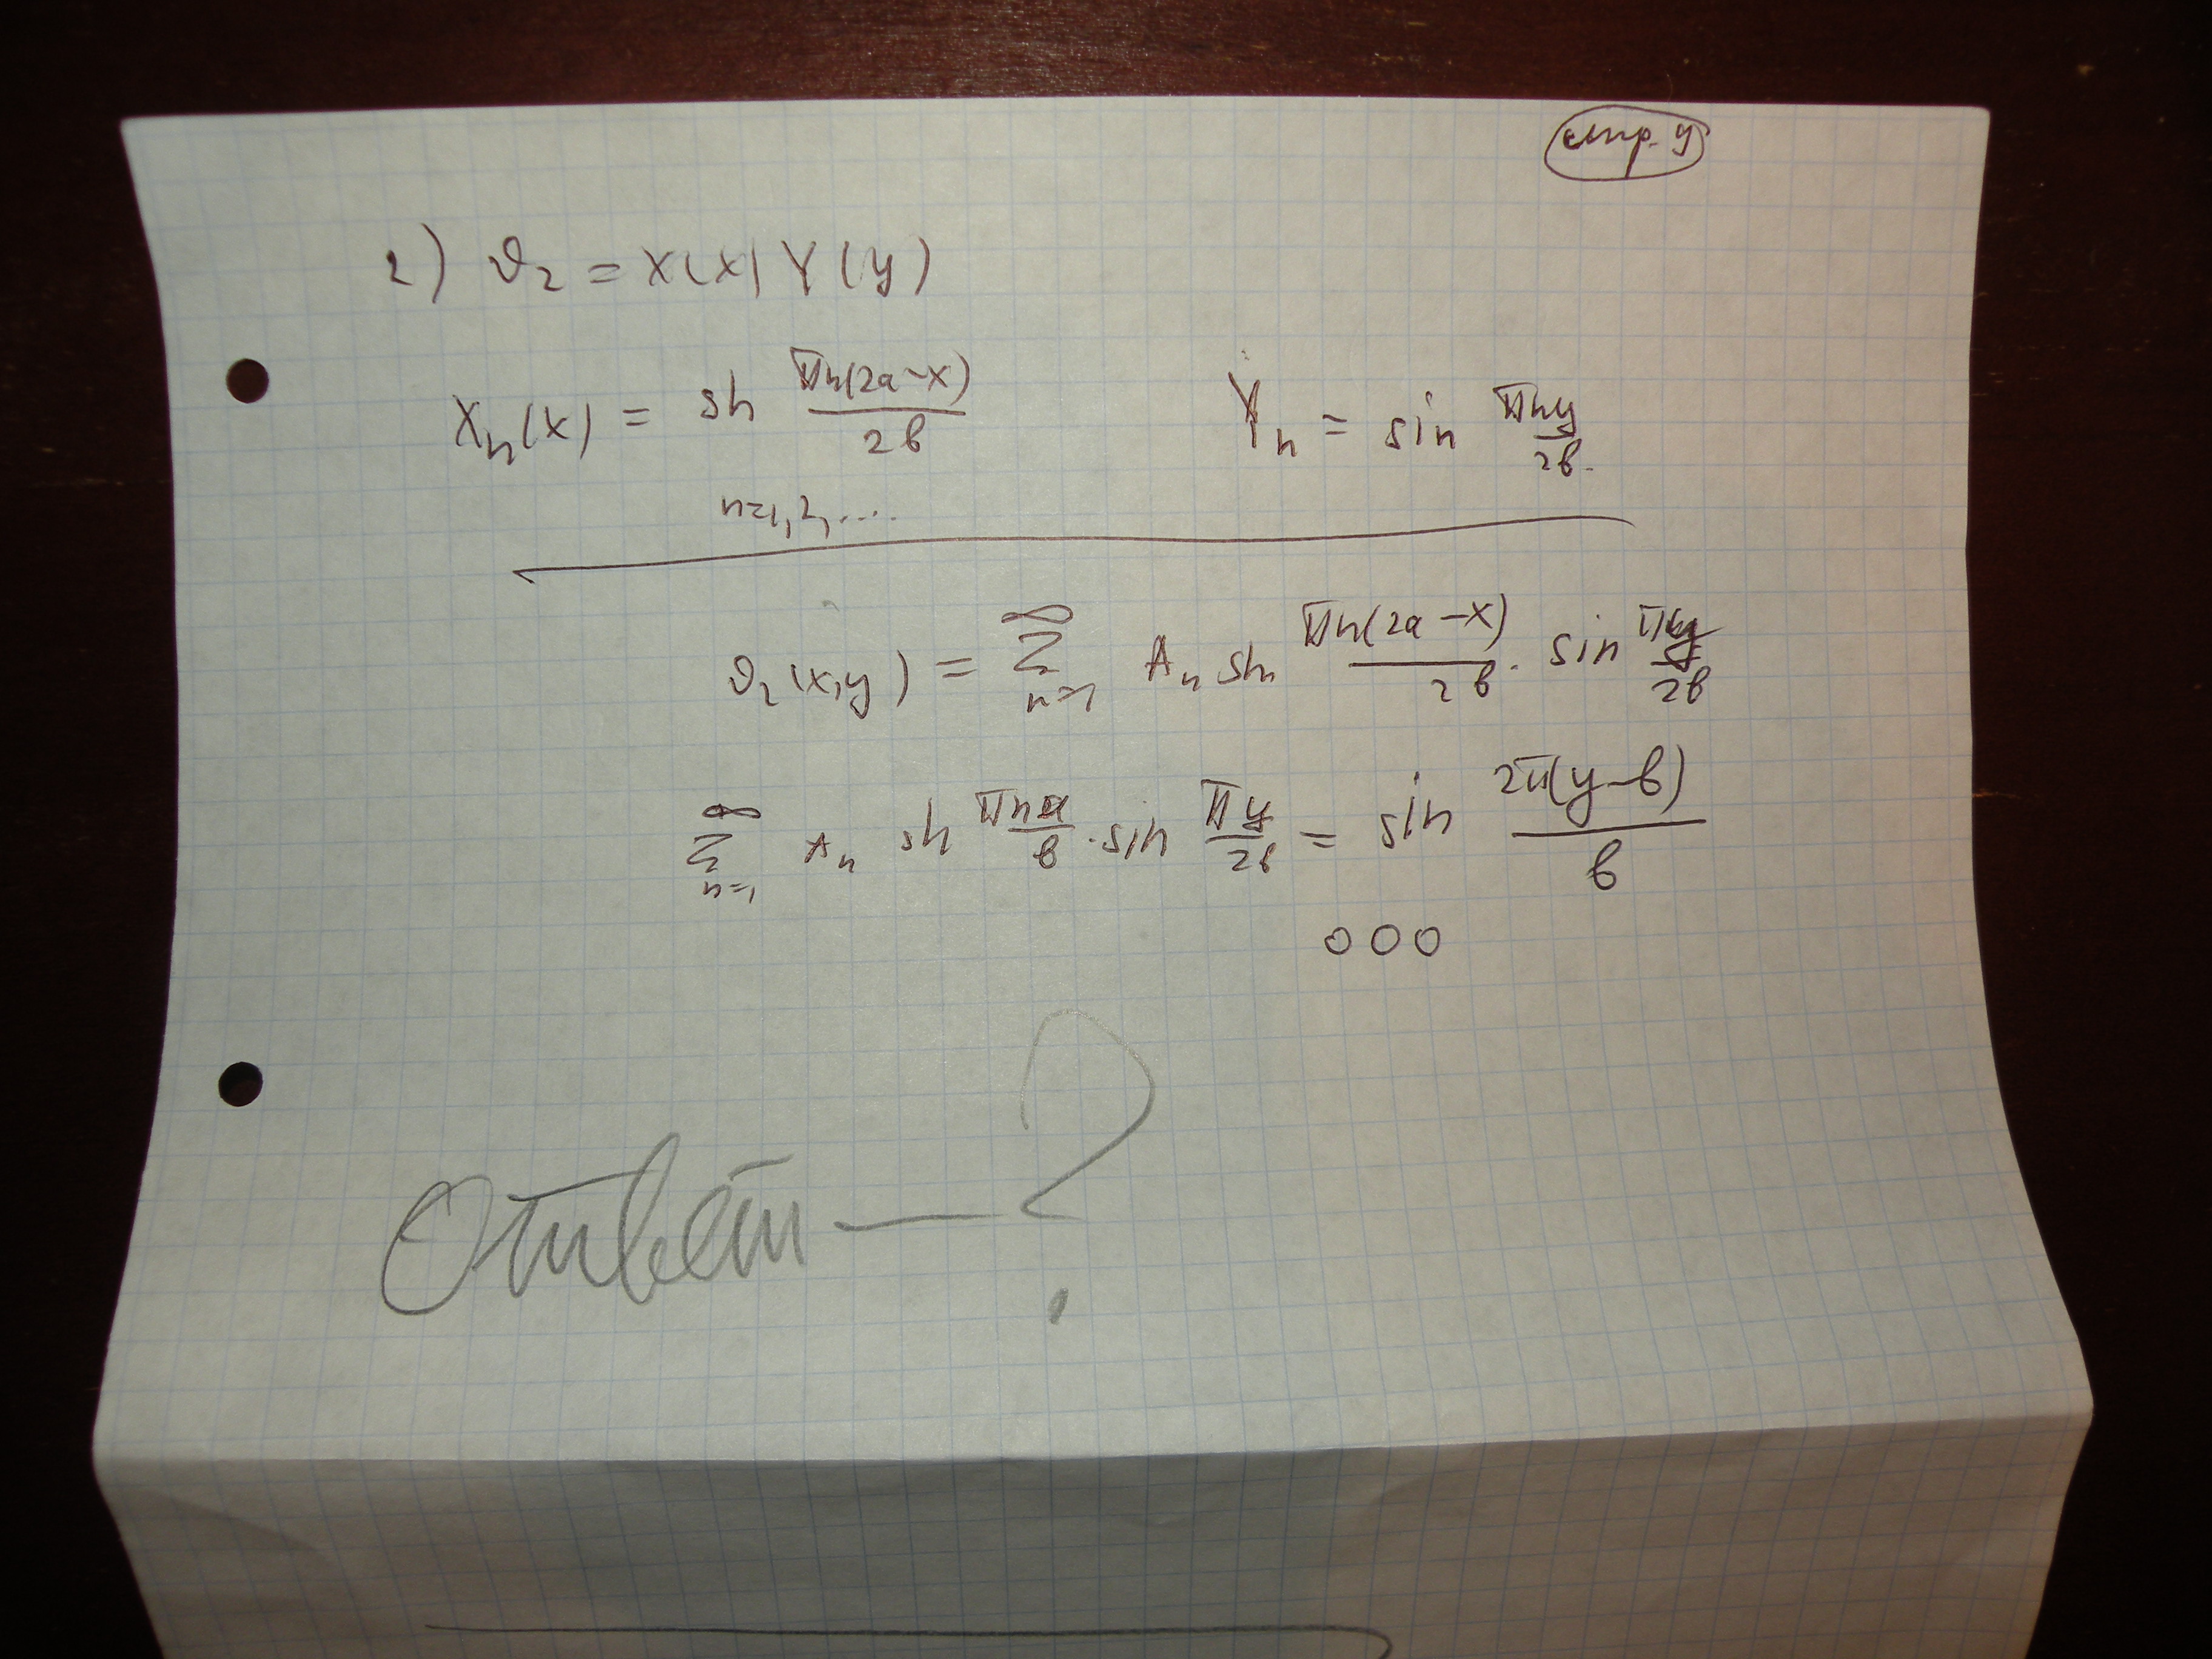 стр. 4
2) v₂ = X(x) Y(y)
Xₙ(x) = sh πn(2a-x)/2b Yₙ = sin πny/2b.
n=1,2,...
v₂(x,y) = ∑_{n=1}^{∞} Aₙ sh πn(2a-x)/2b · sin πny/2b
∑_{n=1}^{∞} Aₙ sh πna/b · sin πy/2b = sin 2π(y-b)/b
ооо
Ответ — ?